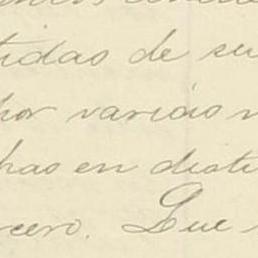 tidas de su
por varias
has en disti
cero. Que